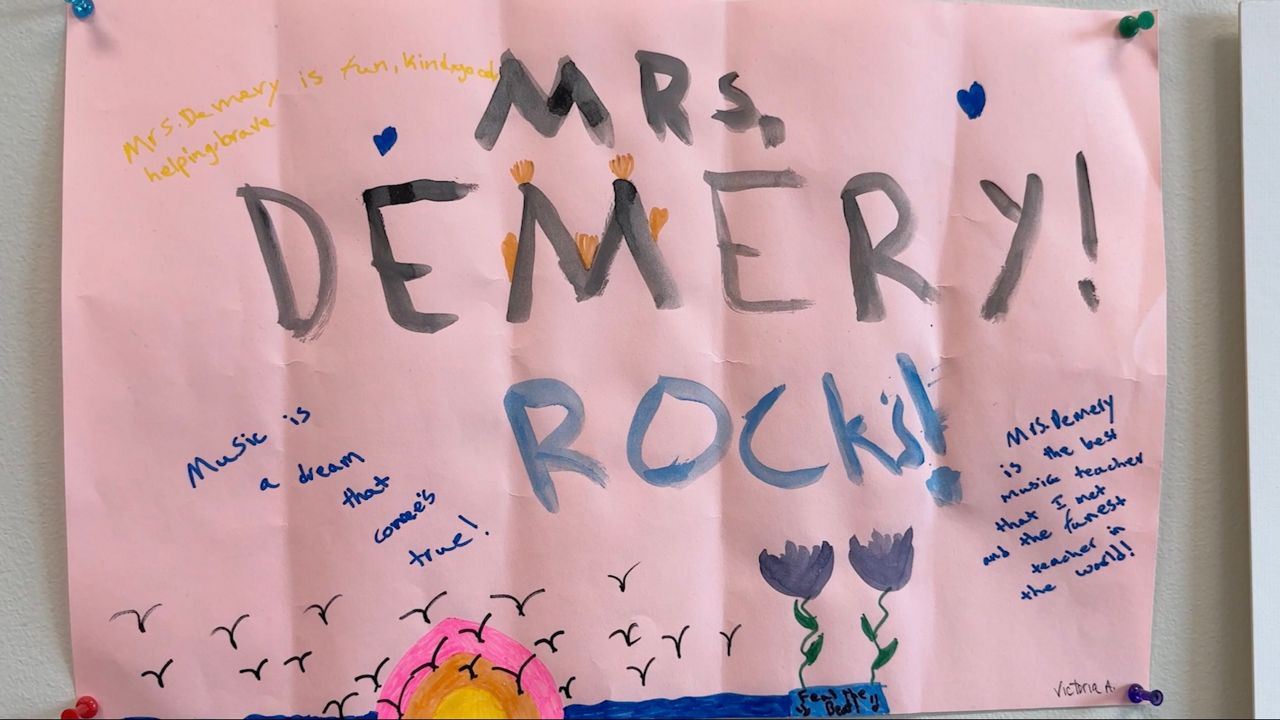 Mrs. Demery is fun, kind, good,
helping, brave
MRS.
DEMERY!
ROCKS!
Music is
a dream
that
comees
true!
Mrs. Demery
is the best
music teacher
that I met
and the funest
teacher in
the world!
Victoria A.